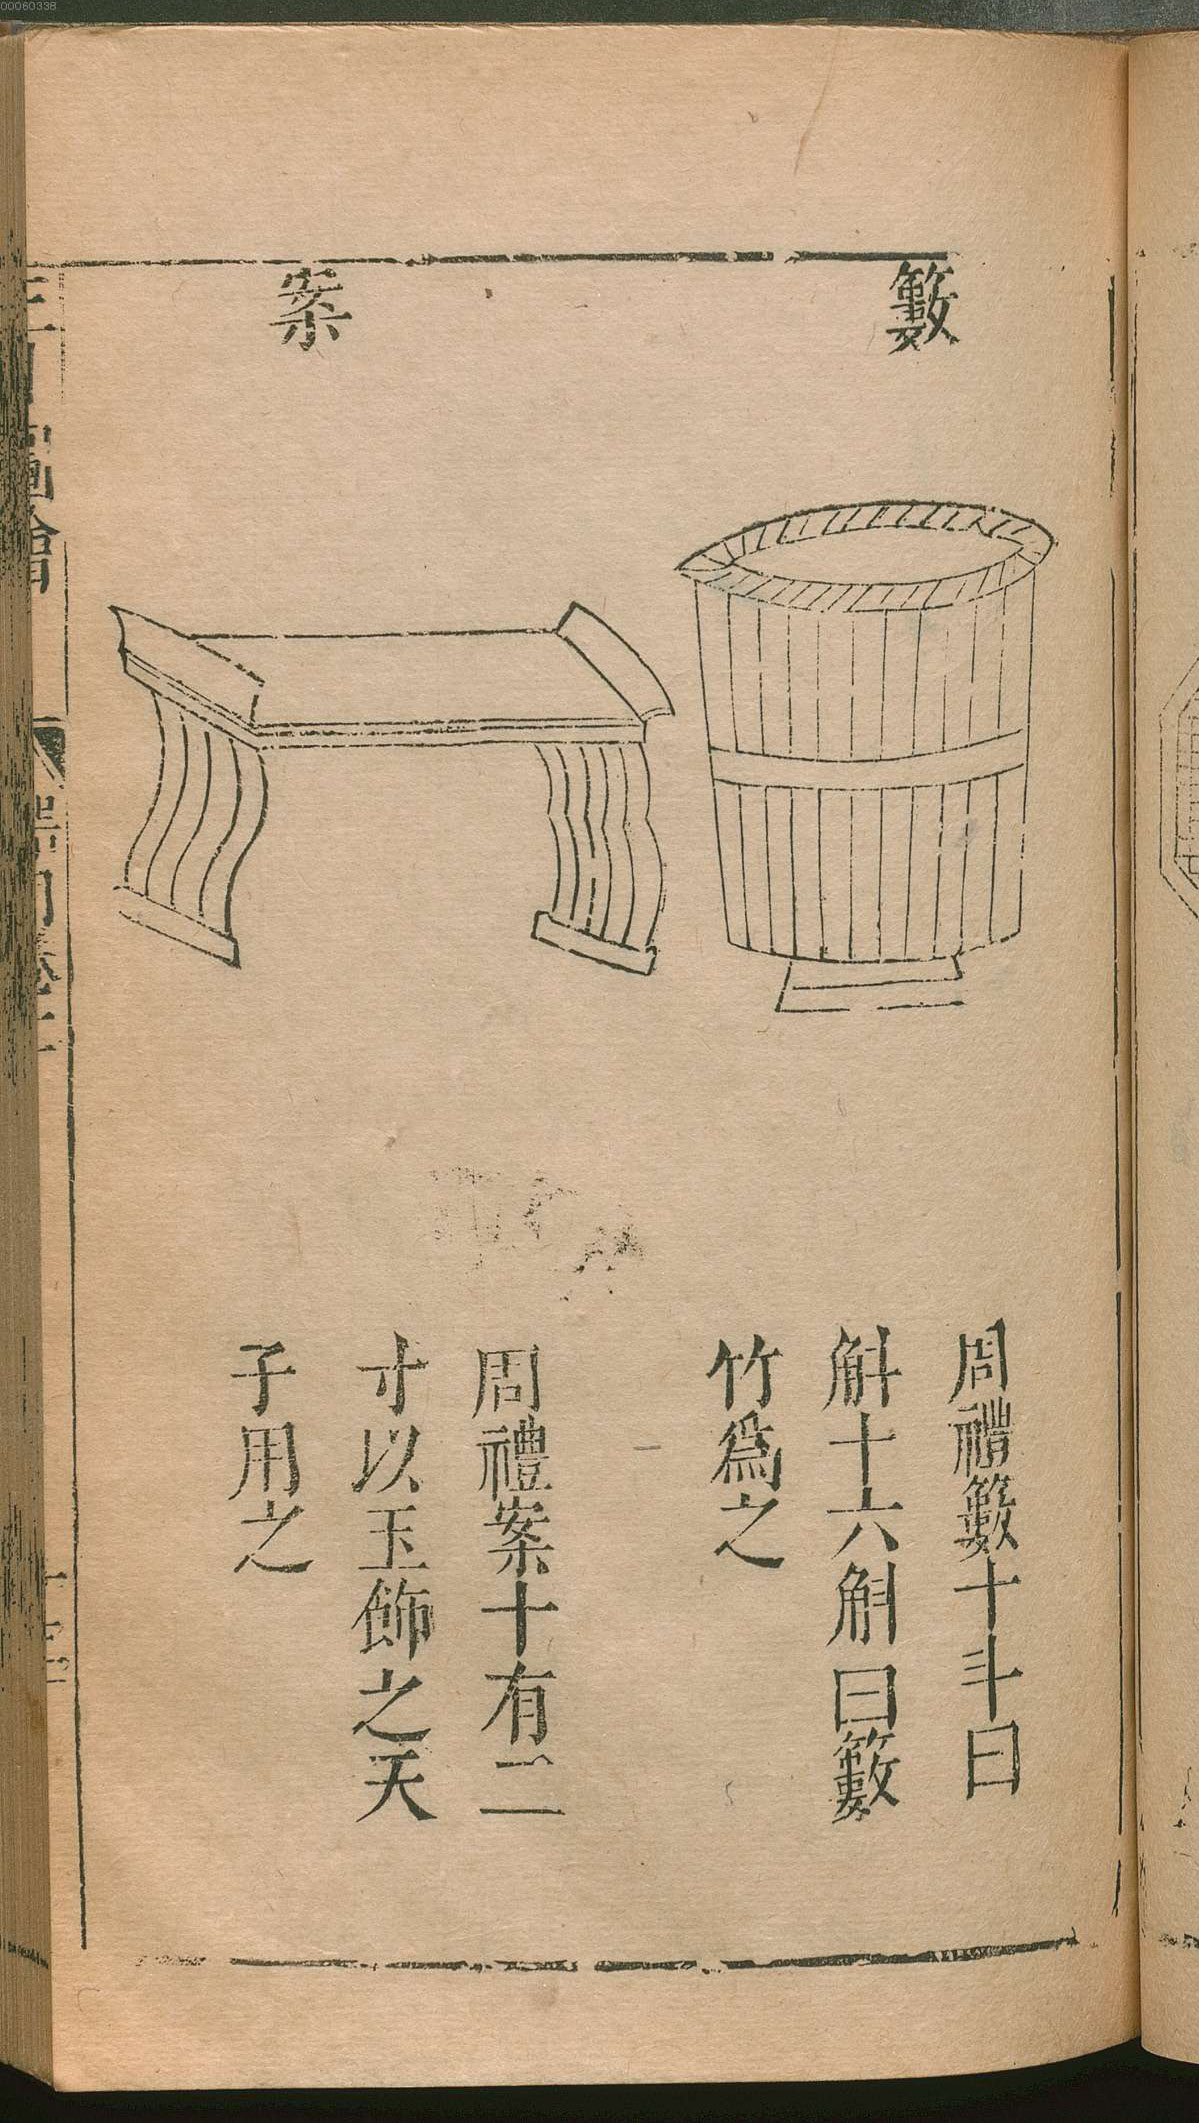 00060338
籔
案
周禮籔十斗曰
斛十六斛曰籔
竹爲之
周禮案十有二
寸以玉飾之天
子用之